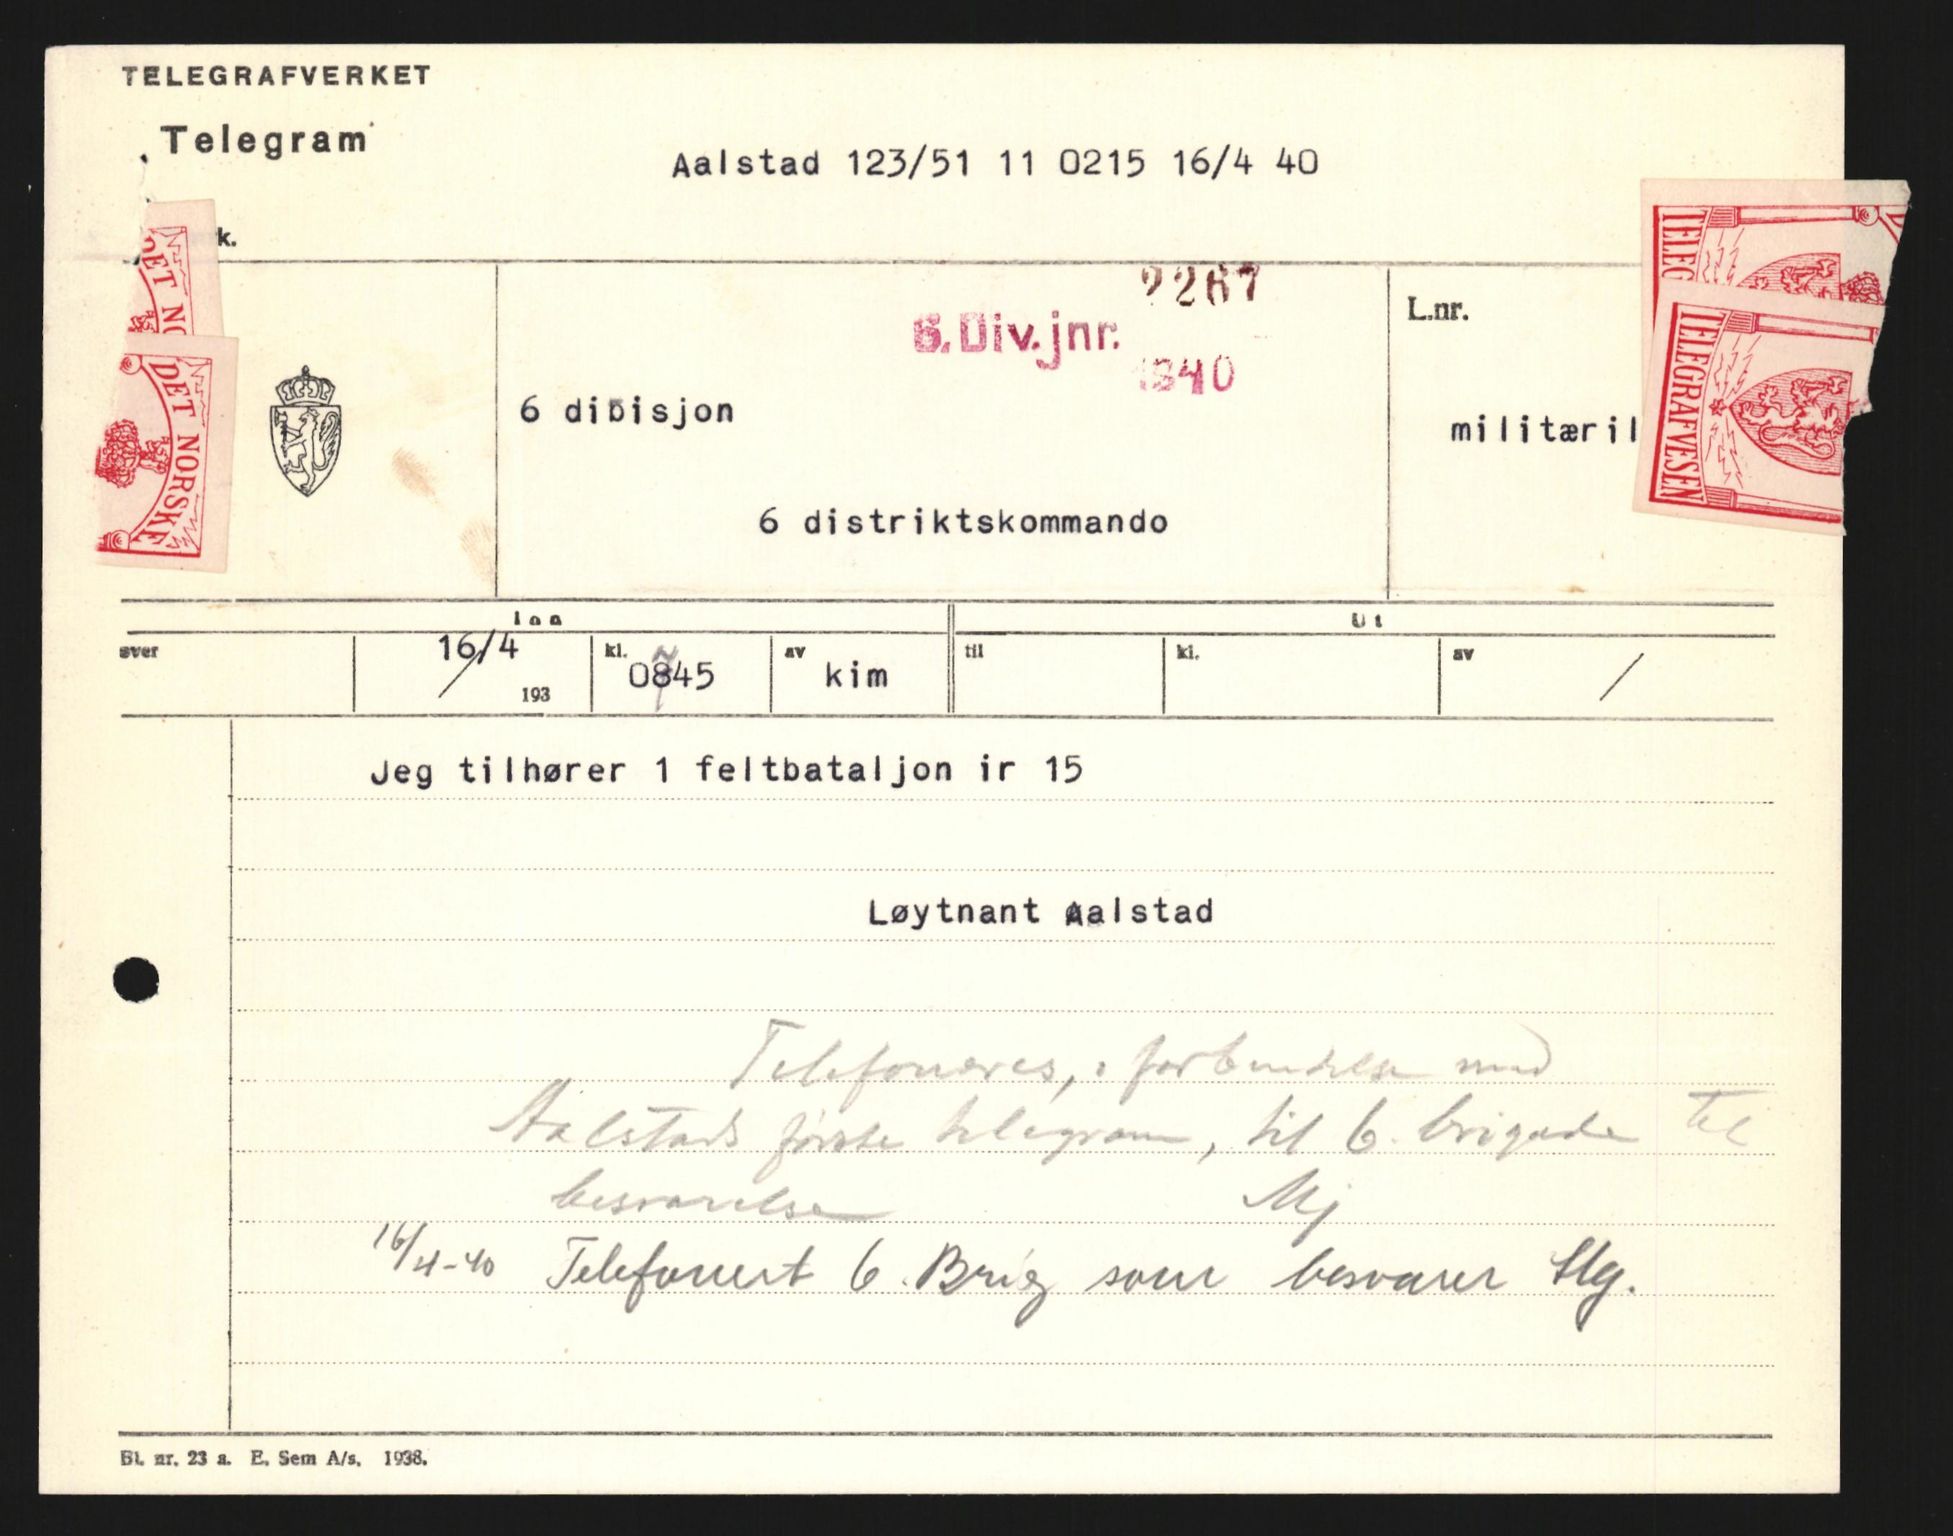 TELEGRAFVERKET
Telegram
Aalstad 123/51 11 0215 16/4 40
k.
2267
6.Div.jnr.
1940
L.nr.
6 divisjon
militæril
6 distriktskommando
DET NO
DET NORSKE
TELEG
TELEGRAFVESEN
Inn
Ut
over
16/4
193
kl.
0845
7
av
kim
til
kl.
av
Jeg tilhører 1 feltbataljon ir 15
Løytnant Aalstad
Telefoneres, i forbindelse med
Aalstads første telegram, til 6. brigade til
besvarelse
Mj
16/4-40 Telefonert 6. Brig som besvarer
Bl. nr. 23 a. E. Sem A/s, 1938.